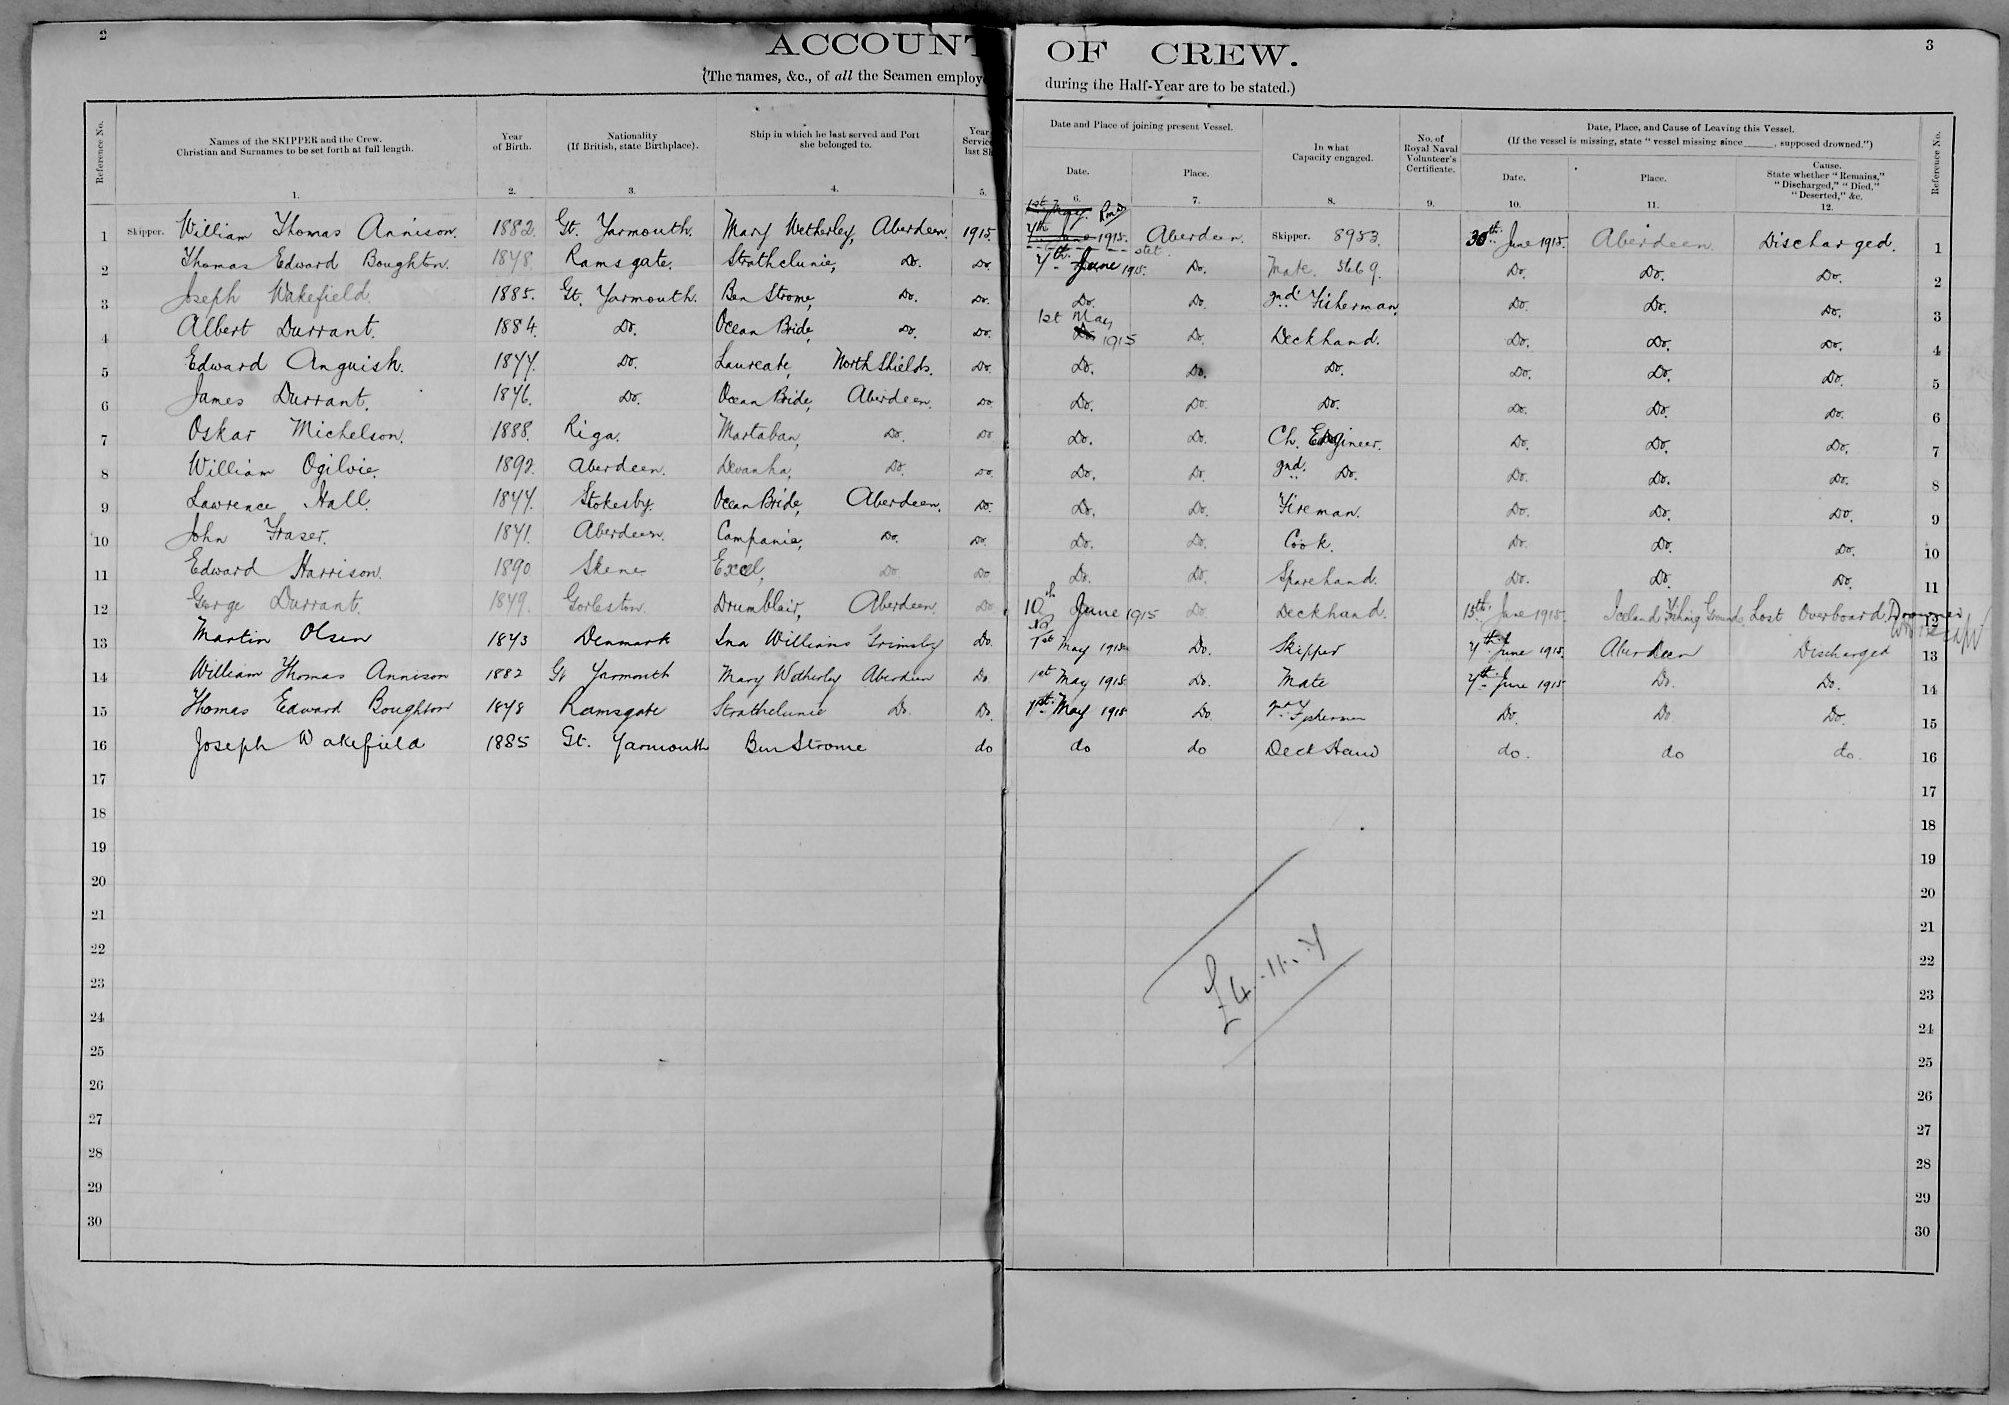 2
ACCOUNT OF CREW.
3
(The names, &c., of all the Seamen employe during the Half-Year are to be stated.)
Reference No.
Names of the SKIPPER and the Crew.
Christian and Surnames to be set forth at full length.
1.
Year
of Birth.
2.
Nationality
(If British, state Birthplace).
3.
Ship in which he last served and Port
she belonged to.
4.
Year
Service
last Sh
5.
Date and Place of joining present Vessel.
Date.
6.
Place.
7.
In what
Capacity engaged.
8.
No. of
Royal Naval
Volunteer's
Certificate.
9.
Date, Place, and Cause of Leaving this Vessel.
(If the vessel is missing, state "vessel missing since , supposed drowned.")
Date.
10.
Place.
11.
Cause.
State whether "Remains,"
"Discharged," "Died,"
"Deserted," &c.
12.
Reference No.
1st May
1 Skipper. William Thomas Annison. 1882. Gt. Yarmouth. Mary Wetherley, Aberdeen. 1915. 7th June 1915. Aberdeen. Skipper. 8953. 30th June 1915. Aberdeen. Discharged. 1
stet
2 Thomas Edward Boughton. 1878. Ramsgate. Strathclunie, Do. Do. 7th June 1915. Do. Mate. Do. Do. Do. 2
3 Joseph Wakefield. 1885. Gt. Yarmouth. Ben Strome, Do. Do. Do. Do. 2nd Fisherman. Do. Do. Do. 3
1st May
4 Albert Durrant. 1884. Do. Ocean Bride, Do. Do. Do 1915 Do. Deckhand. Do. Do. Do. 4
5 Edward Anguish. 1877. Do. Laureate, North Shields. Do. Do. Do. Do. Do. Do. Do. 5
6 James Durrant. 1876. Do. Ocean Bride, Aberdeen. Do. Do. Do. Do. Do. Do. Do. 6
7 Oskar Michelson. 1888. Riga. Martaban, Do. Do Do. Do. Ch. Engineer. Do. Do. Do. 7
8 William Ogilvie. 1892. Aberdeen. Devanha, Do. Do. Do. Do. 2nd. Do. Do. Do. Do. 8
9 Lawrence Hall. 1877. Stokesby. Ocean Bride, Aberdeen. Do. Do. Do. Fireman. Do. Do. Do. 9
10 John Fraser. 1871. Aberdeen. Campania, Do. Do. Do. Do. Cook. Do. Do. Do. 10
11 Edward Harrison. 1890 Skene Excel, Do. Do. Do. Do. Sparehand. Do. Do. Do. 11
12 George Durrant. 1879. Gorleston. Drumblair, Aberdeen. Do. 10th June 1915 Do. Deckhand. 15th June 1915. Iceland Fishing Grounds. Lost Overboard. Drowned 12
13 Martin Olsen 1873 Denmark Ina Williams Grimsby Do. 1st May 1915 Do. Skipper 7th June 1915. Aberdeen Discharged 13
14 William Thomas Annison 1882 Gt Yarmouth Mary Wetherley Aberdeen Do. 1st May 1915 Do. Mate 7th June 1915 Do. Do. 14
15 Thomas Edward Boughton 1878 Ramsgate Strathclunie Do. Do. 1st May 1915 Do Fisherman Do. Do Do. 15
16 Joseph Wakefield 1885 Gt. Yarmouth Ben Strome do do do Deck Hand do. do do. 16
17 17
18 18
19 19
20 20
21 21
22 22
23 23
24 24
25 25
26 26
27 27
28 28
29 29
30 30
£4.11.7